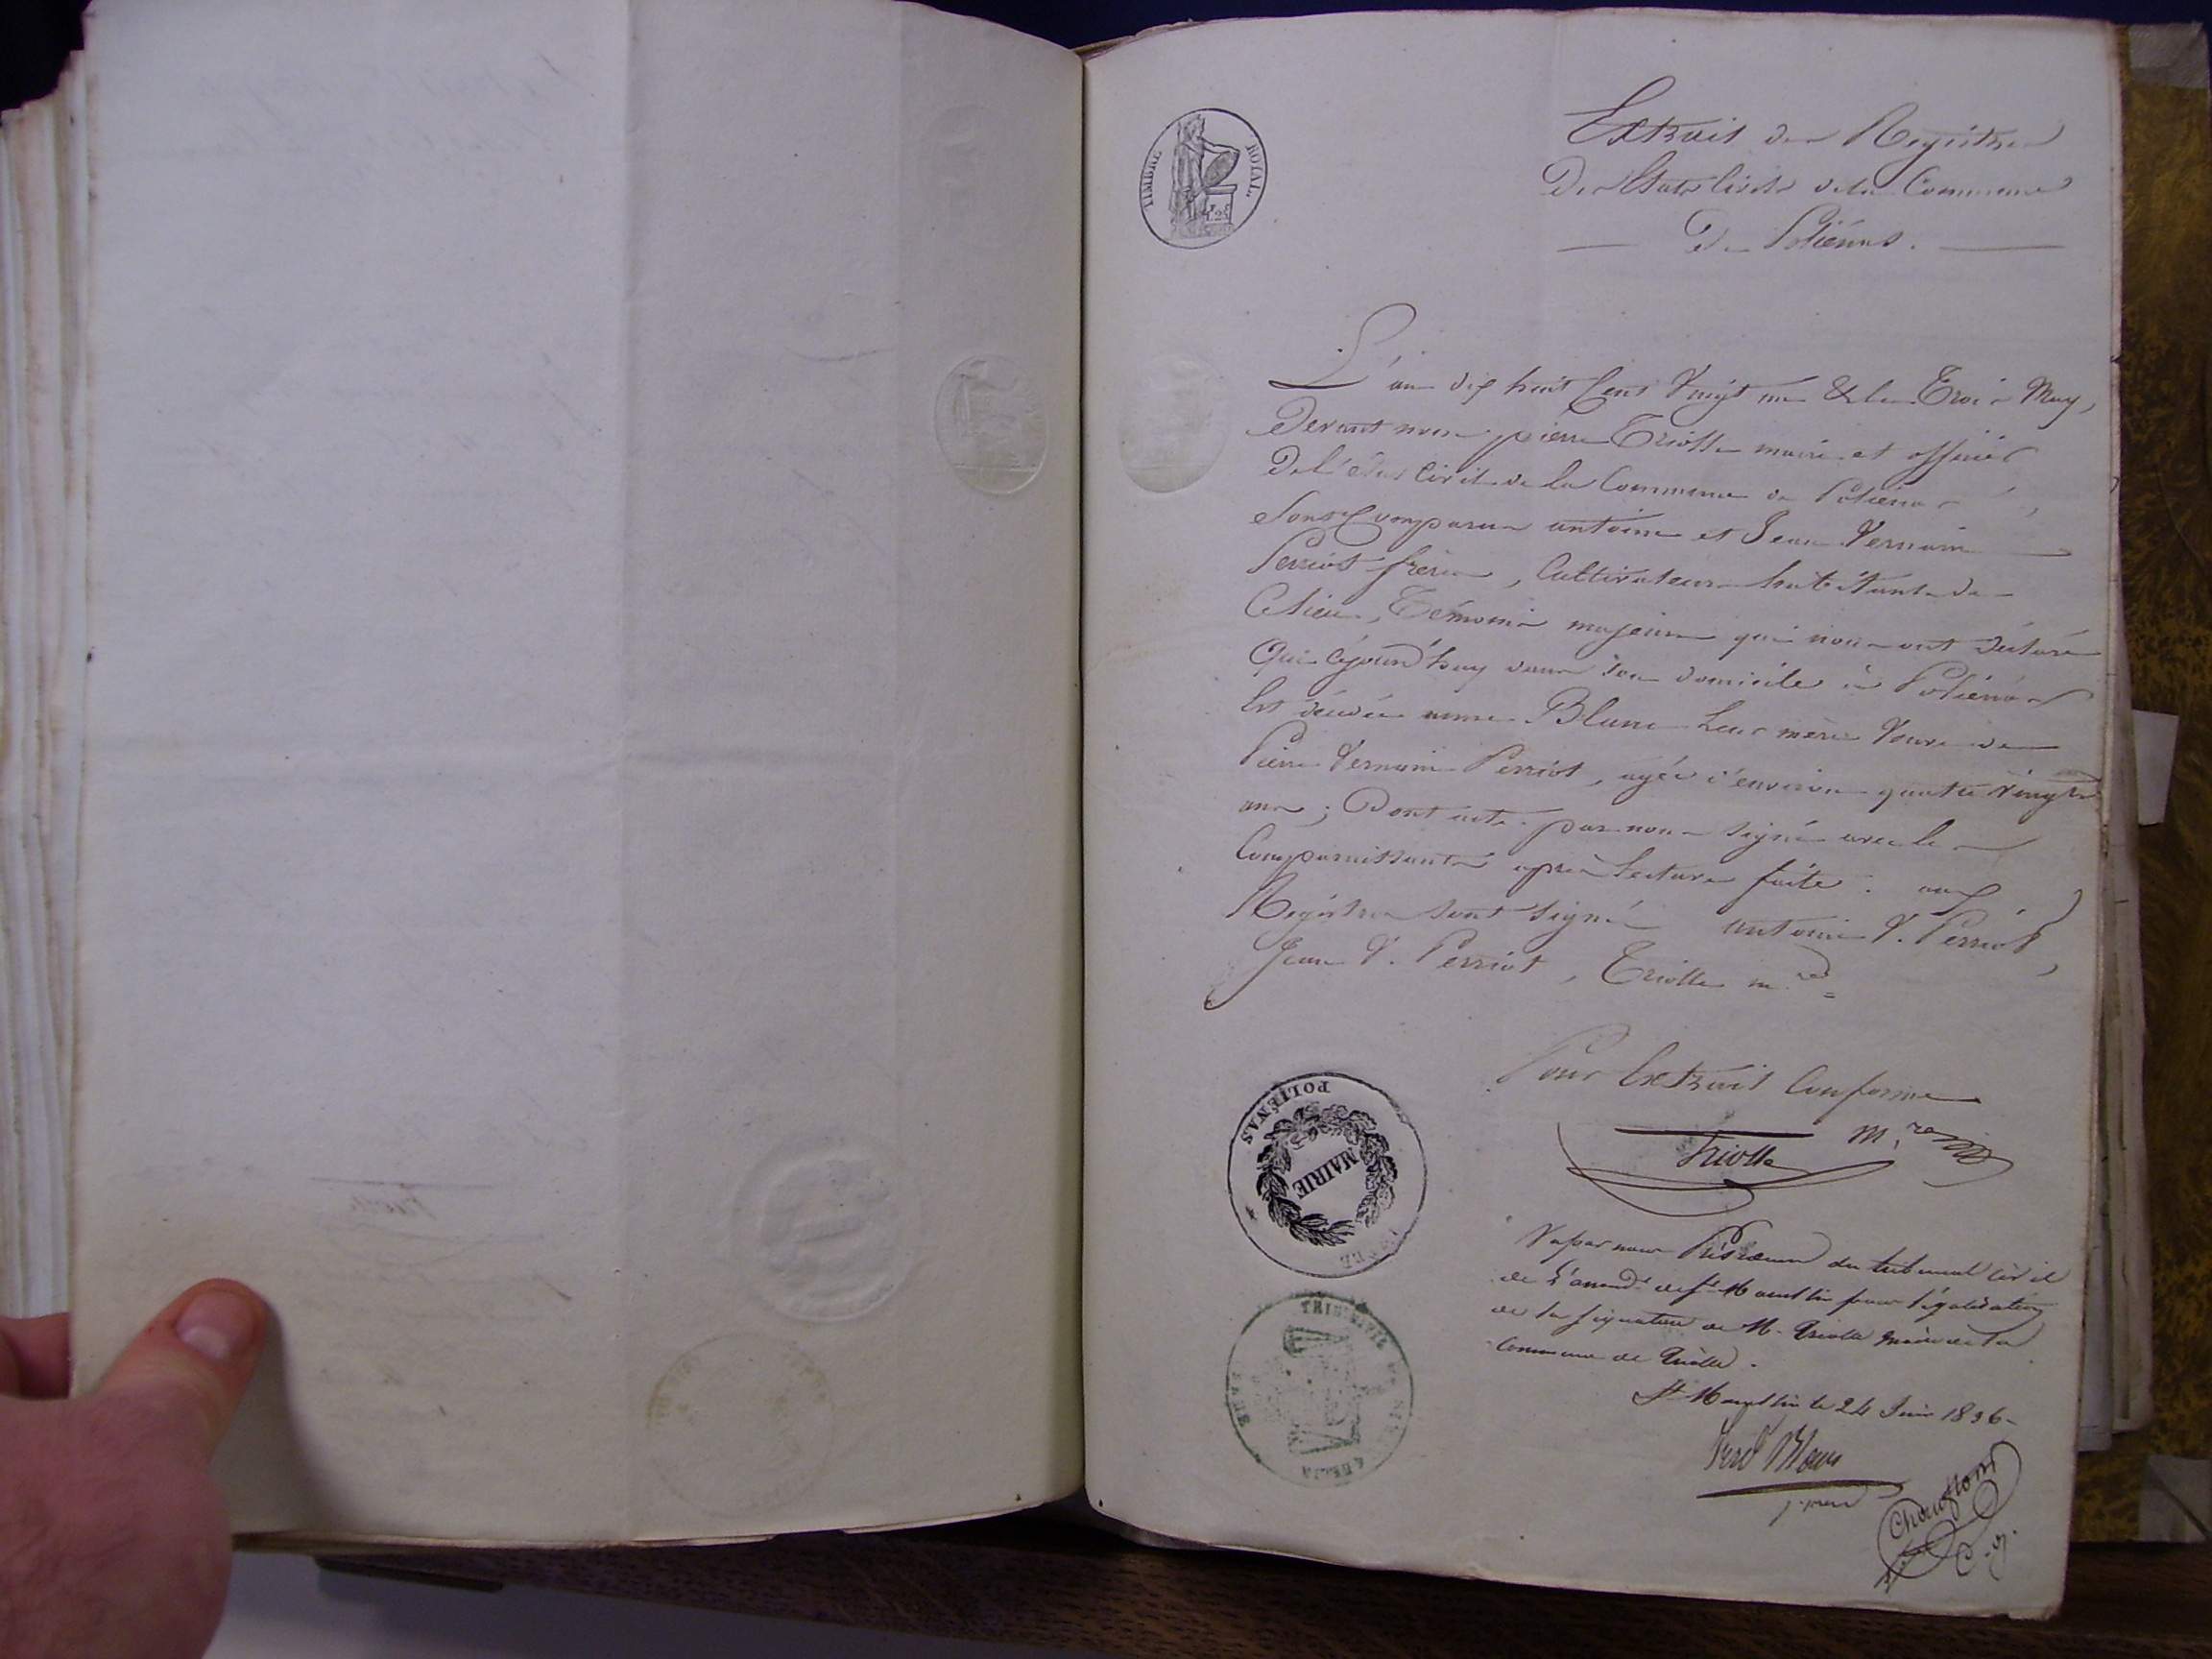 TIMBRE ROYAL
Extrait des Registres
Des Etats Civils de la Commune
De Poliénas.
L'an dix huit Cent Vingt un & le Trois May,
Devant nous pierre Triolle maire et officier
De l'état Civil de la Commune de Poliénas,
Sont Comparus antoine et Jean Vernain
Perriot frères, Cultivateurs habitants de
Ce lieu, Témoins majeurs qui nous ont déclaré
Que cejourd'huy dans son domicile à Poliénas
Est décédée anne Blanc Leur mère Veuve de
Pierre Vernain Perriot, agée d'environ quatre Vingts
ans; Dont acte par nous signé avec les
Comparaissants après Lecture faite. aux
Registres sont signés antoine V. Perriot,
Jean V. Perriot, Triolle m.re
Pour Extrait Conforme
Triolle M.re
POLIÉNAS
MAIRIE
Vu par nous Président du tribunal civil
de L'arrond.t de St Marcellin pour légalisation
de la signature de M. Triolle maire de la
Commune de Triolle.
St Marcellin le 24 Juin 1836
TRIB. CIVIL